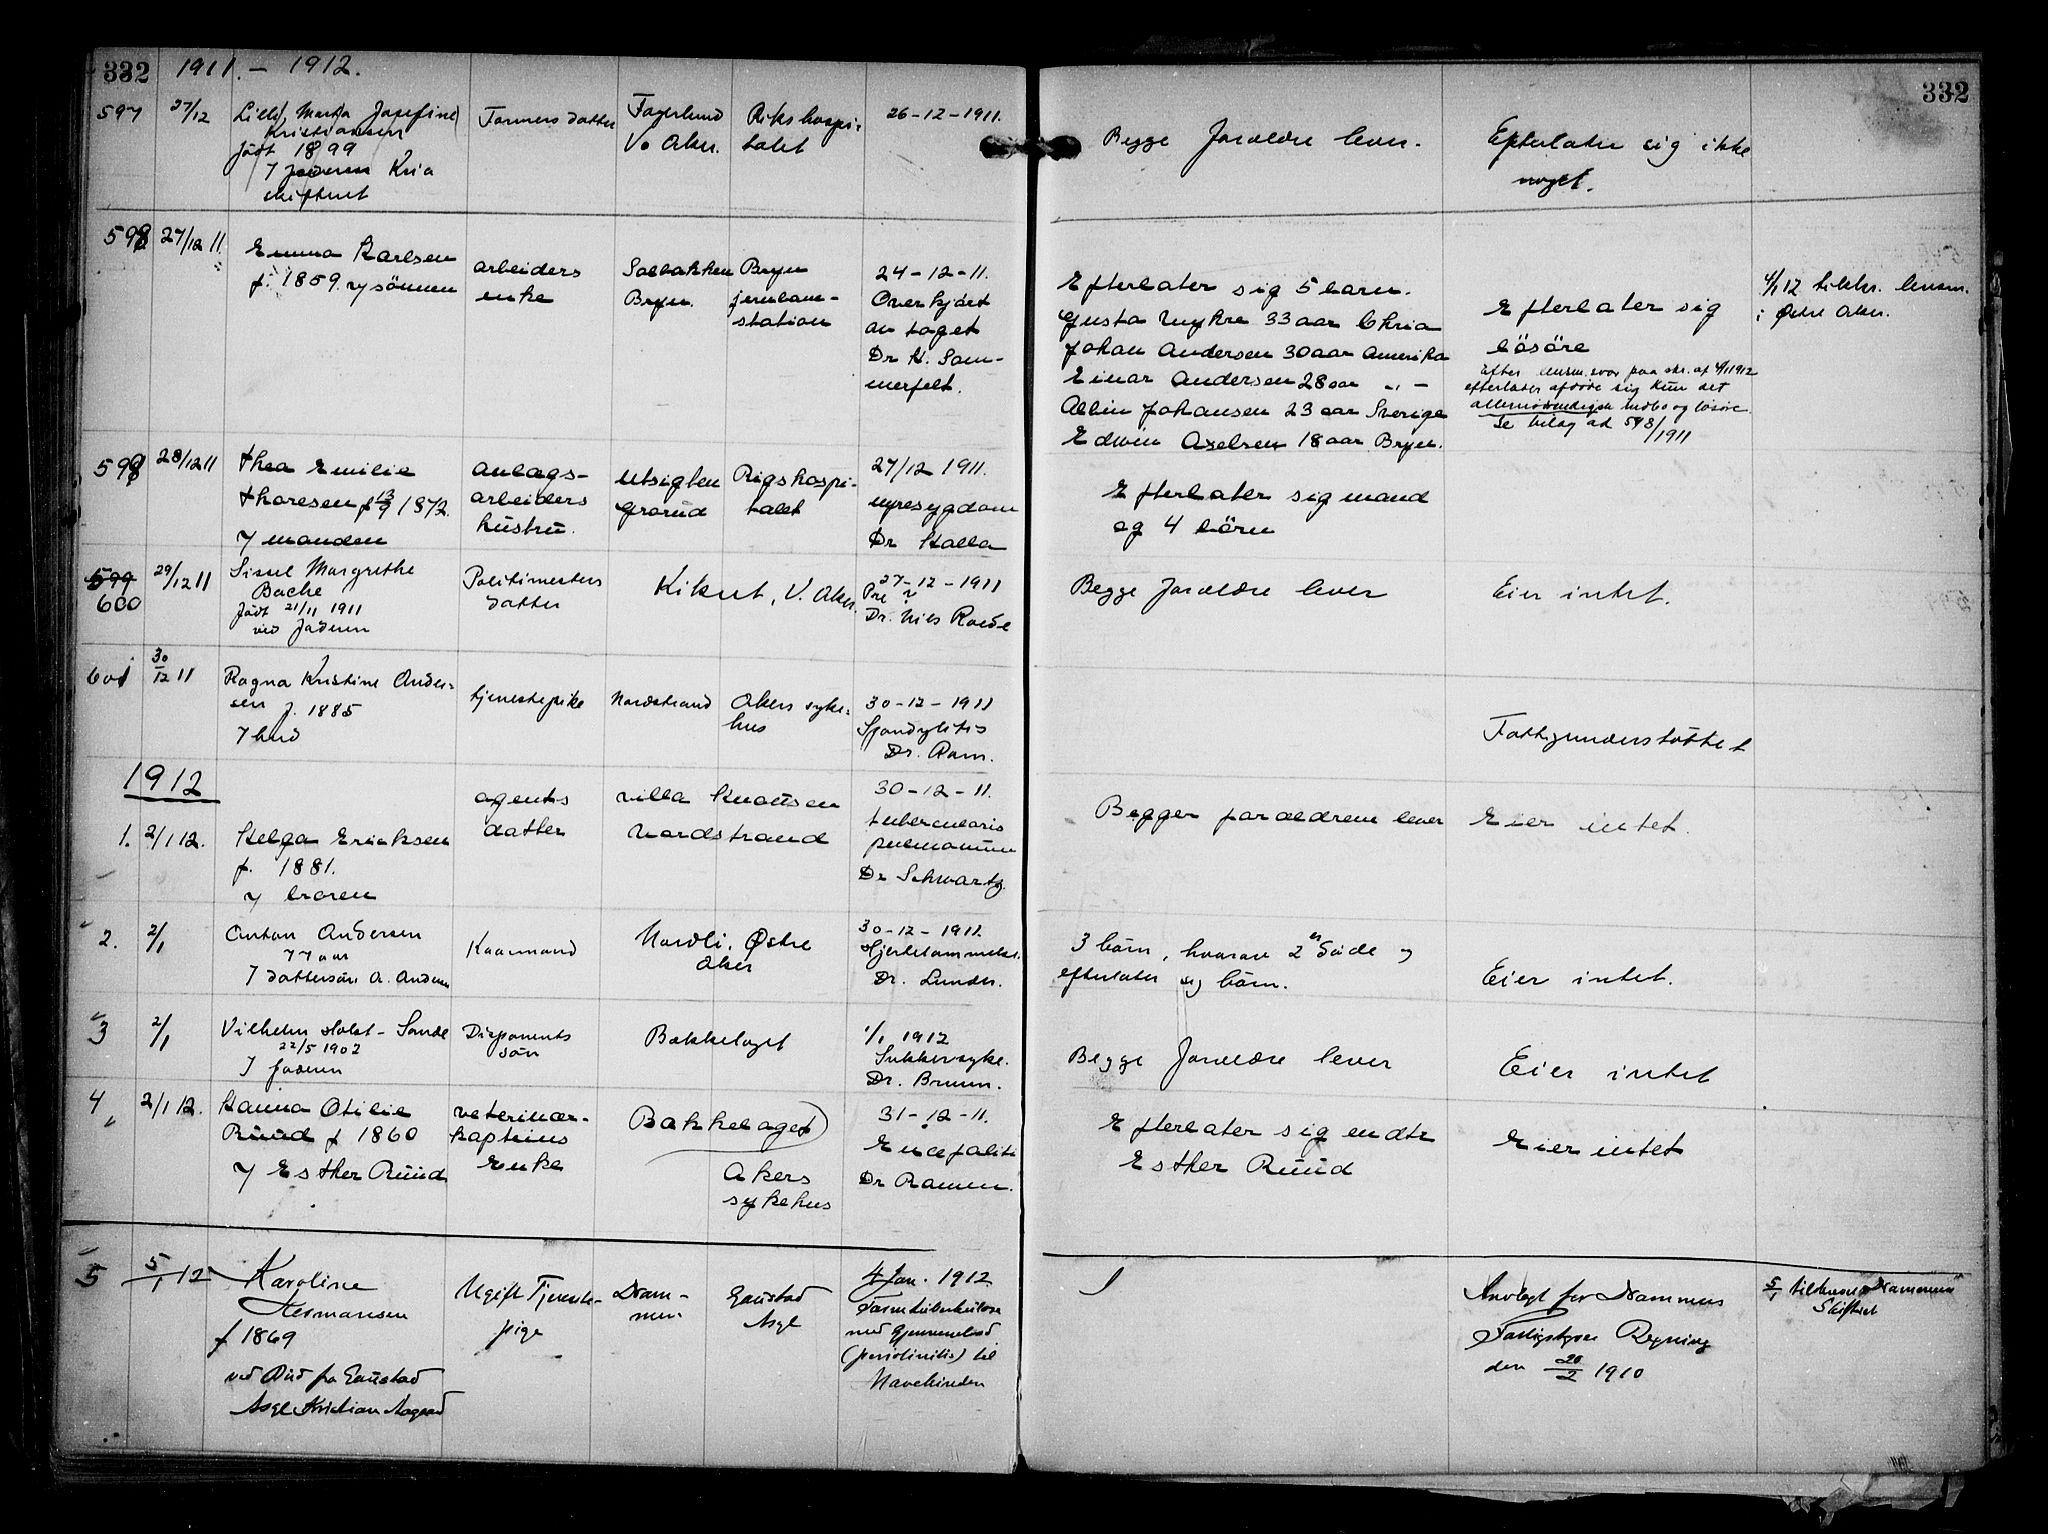 332 1911. – 1912. 332
597 27/12 Lilly Marta Josefine
Kristiansen
født 1899
/ faderen Kria
skifteret
Formers datter
Fagerlund
V. Aker.
Rikshospi-
talet
26-12-1911.
Begge forældre lever.
Efterlater sig ikke
noget.
598 27/12 11
Emma Karlsen
f. 1859. v/ sønnen
arbeiders
enke
Solbakken
Bryn.
Bryn
jernban-
station
24-12-11.
Overkjørt
av toget
Dr H. Som-
merfelt.
Efterlater sig 5 barn.
Gusta Myhre 33 aar Chria
Johan Andersen 30 aar Amerika
Einar Andersen 28 aar -"-
Albin Johansen 23 aar Sverige
Edwin Axelsen 18 aar Bryn.
Efterlater sig
løsøre
efter lensm. svar paa skr. af 4/1 1912
efterlater afdøde sig kun det
allernødvendigste indbo og løsøre.
Se bilag ad 598/1911
4/1 12 tilskr. lensm.
i Østre Aker.
599 28/12 11
Thea Emilie
Thoresen f 13/9 1872.
v/ manden
anlægs-
arbeiders
hustru.
Utsigten
Grorud
Rigshospi-
talet
27/12 1911.
nyresygdom
Dr Halla
Efterlater sig mand
og 4 børn
599
600
29/12 11
Sissel Margrethe
Bache
født 21/11 1911
ved faderen
Politimesters
datter
Kikut, V. Aker.
27-12-1911
Dr. Nils Roede
Begge forældre lever
Eier intet.
601 30/12 11
Ragna Kristine Ander-
sen f. 1885
/ bud
tjenestepike
Nordstrand
Akers syke-
hus
30-12-1911
Spondylitis
Dr. Ram.
Fattigunderstøttet
1912
1. 2/1 12.
Helga Eriksen
f. 1881.
v/ broren
agents
datter
villa Knoutsen
Nordstrand
30-12-11.
tubercularis
pulmonum
Dr Schwartz.
Begge forældrene lever
Eier intet.
2. 2/1
Anton Andersen
77 aar
/ dattersøn A. Andersen
Kaarmand
Nordli, Østre
Aker
30-12-1911.
Hjertelammelse.
Dr. Lunder.
3 børn, hvorav 2 er døde og
efterlater sig børn.
Eier intet.
3 2/1
Vilhelm Holst-Sande
22/5 1902
/ faderen
Disponents
søn
Bækkelaget
1/1 1912
Sukkersyke.
Dr. Bruun.
Begge forældre lever
Eier intet
4 2/1 12.
Hanna Otilie
Ruud f 1860
v/ Esther Ruud
veterinær-
kapteins
Enke
Bækkelaget
Akers
sykehus
31-12-11.
Encefaliti
Dr Ramm.
Efterlater sig en dtr
Esther Ruud
Eier intet
5 5/1 12
Karoline
Hermansen
f 1869
ved Bud fra Gaustad
Asyl Kristian Aagaard
Ugift Tjeneste-
pige
Dram-
men.
Gaustad
Asyl
4 Jan. 1912.
Tarmtuberkulose
med Gjennembrud
(peritonitis) til
Navelsiden
Anlagt for Drammens
Fattigstyres Regning
den 20/2 1910
5/1 tilskrevet Drammens
Skifteret